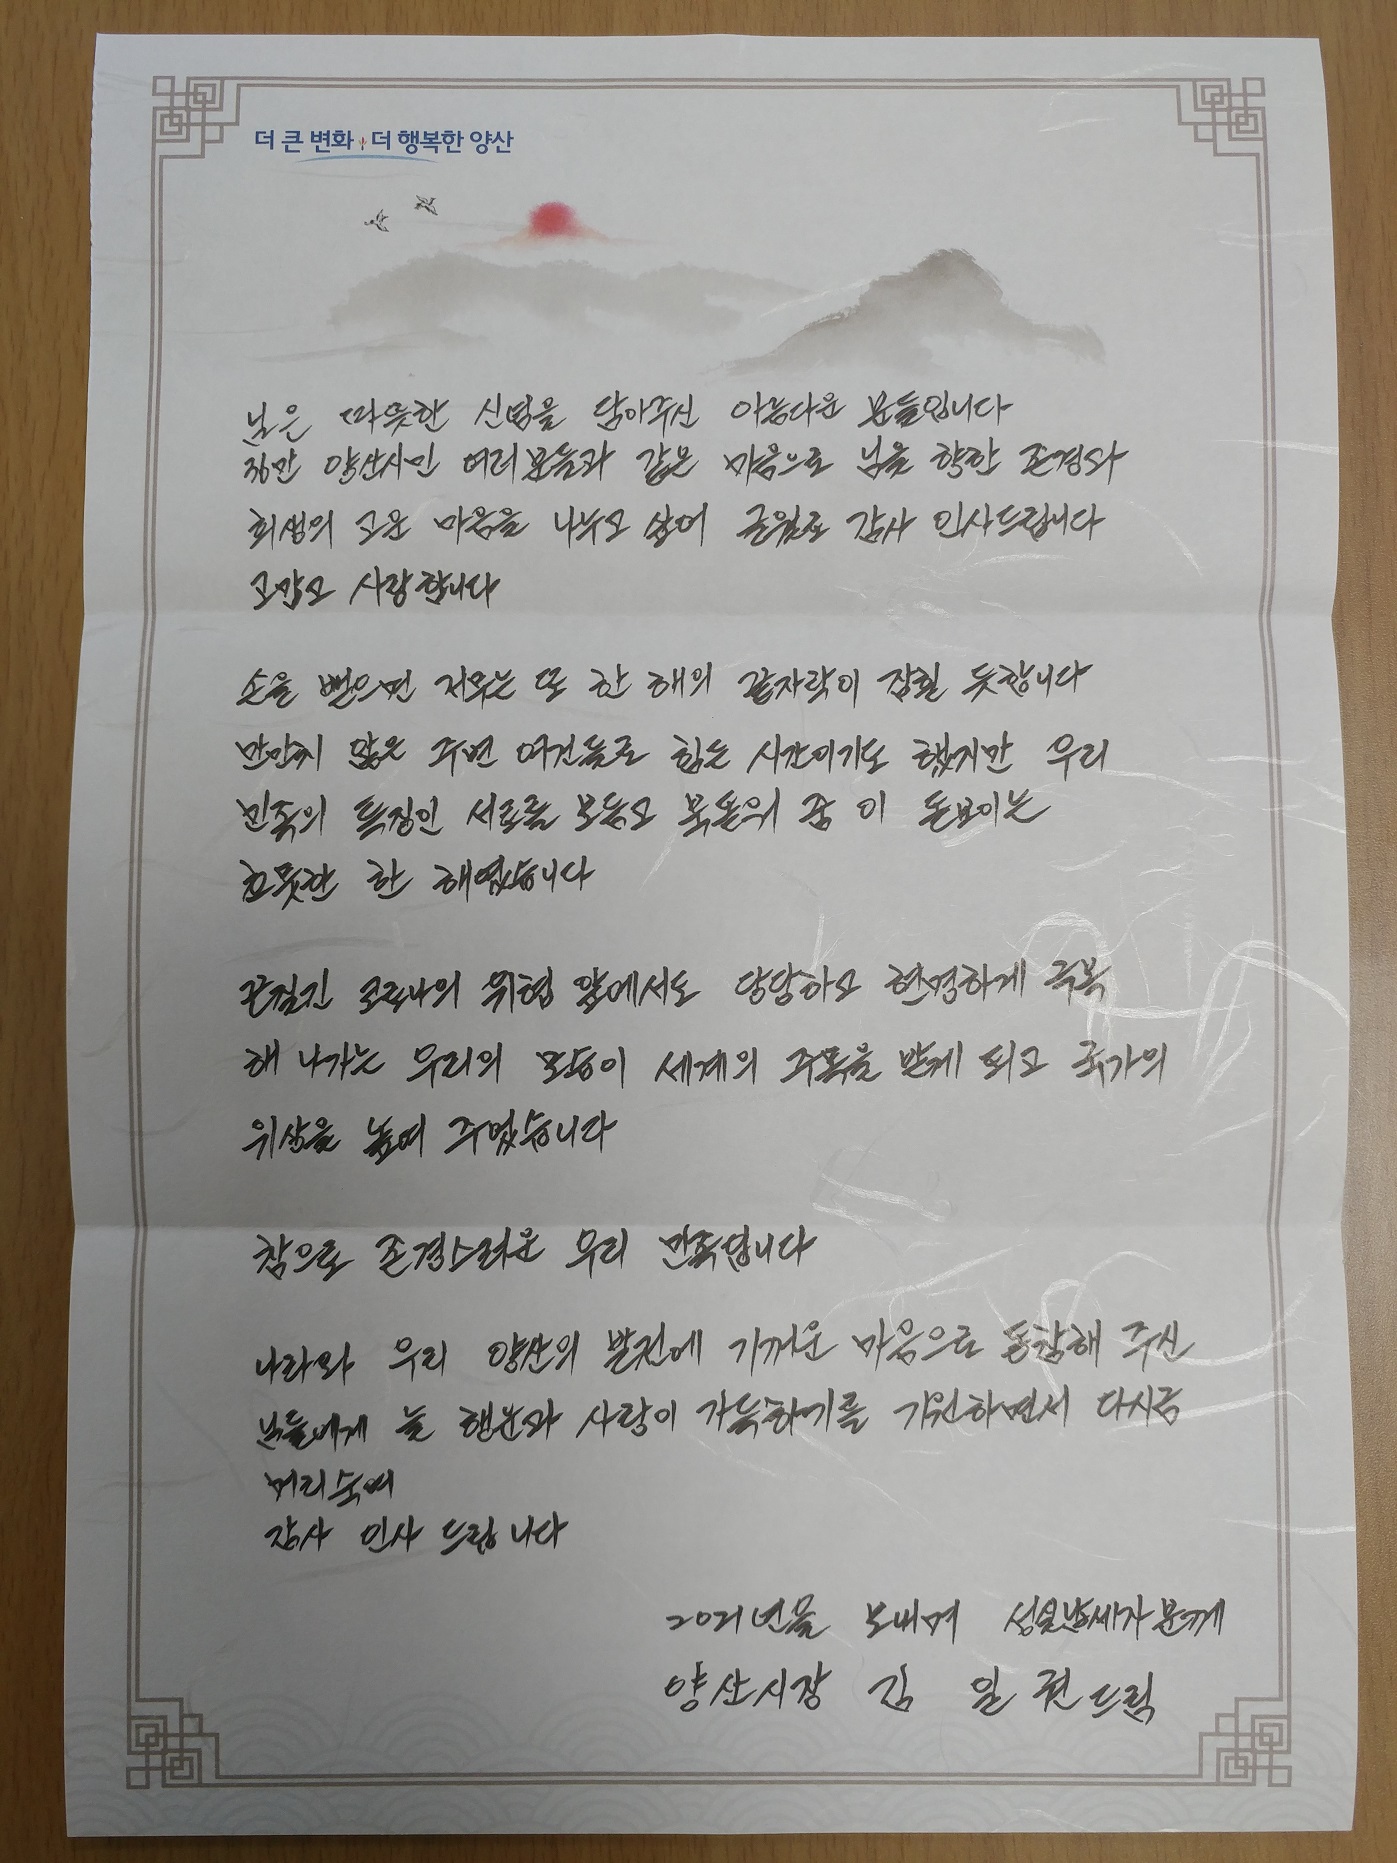 더 큰 변화 더 행복한 양산
님은 따뜻한 신념을 담아주신 아름다운 분들입니다
36만 양산시민 여러분들과 같은 마음으로 님을 향한 존경과
희생의 고운 마음을 나누고 싶어 글월로 감사 인사드립니다
고맙고 사랑합니다
손을 뻗으면 저무는 또 한 해의 끝자락이 잡힐 듯합니다
만만치 않은 주변 여건들로 힘든 시간이기도 했지만 우리
민족의 특징인 서로를 보듬고 북돋의 줌 이 돋보이는
흐뭇한 한 해였습니다
끈질긴 코로나의 위협 앞에서도 당당하고 현명하게 극복
해 나가는 우리의 모습이 세계의 주목을 받게 되고 국가의
위상을 높여 주었습니다
참으로 존경스러운 우리 민족입니다
나라와 우리 양산의 발전에 기꺼운 마음으로 동참해 주신
님들에게 늘 행운과 사랑이 가득하기를 기원하면서 다시금
머리숙여
감사 인사 드립니다
2021년을 보내며 성실납세자분께
양산시장 김 일 권 드림